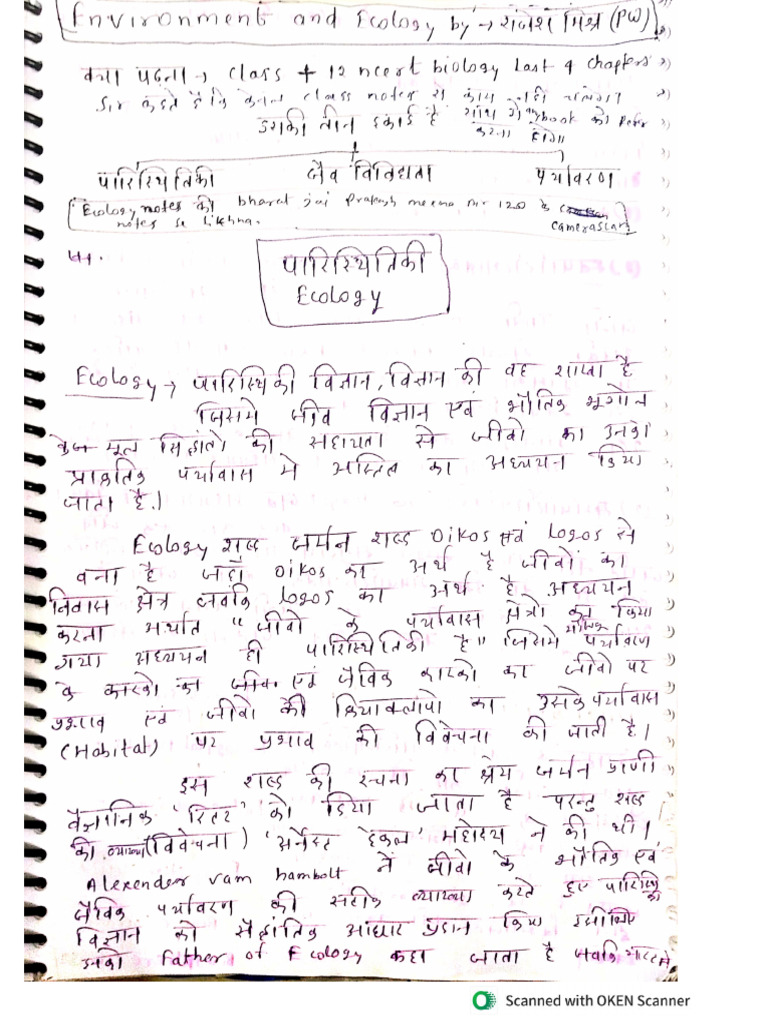 Environment and Ecology by → राजेश मिश्र (PW)
क्या पढ़ना → class + 12 ncert biology Last 4 chapters
सर कहते है कि केवल class notes से काम नही चलेगा
इसकी तीन इकाई है साथ में any book को Refer
करना होगा
पारिस्थितिकी जैव विविधता पर्यावरण
Ecology notes की bharat jai Prakash meena sir 1200 के
notes से likhna. camerascan
पारिस्थितिकी
Ecology
Ecology → पारिस्थिकी विज्ञान, विज्ञान की वह शाखा है
जिसमे जीव विज्ञान एवं भौतिक भूगोल
के कुछ मूल सिद्दांतो की सहायता से जीवो का उनके
प्राकृतिक पर्यावास मे अस्तित्व का अध्ययन किया
जाता है।
Ecology शब्द जर्मन शब्द Oikos एवं Logos से
बना है जहाँ Oikos का अर्थ है जीवों का
निवास क्षेत्र जबकि Logos का अर्थ है अध्ययन
करना अर्थात "जीवो के पर्यावास क्षेत्रो का किया
गया अध्ययन ही पारिस्थितिकी है" जिसमे पर्यावरण
के कारको का जीव एवं जैविक कारको का जीवो पर
प्रभाव एवं जीवो की क्रियाकलापो का उसके पर्यावास
(Habital) पर प्रभाव की विवेचना की जाती है।
इस शब्द की रचना का श्रेय जर्मन प्राणी
वैज्ञानिक 'रिटर' को दिया जाता है परन्तु शब्द
की व्याख्या (विवेचना) 'अर्नेस्ट हेकल' महोदय ने की थी।
Alexender vam hambolt ने जीवो के भौतिक एवं
जैविक पर्यावरण की सटीक व्याख्या करते हुए पारिस्थिकी
विज्ञान को सैद्दांतिक आधार प्रदान किया इसीलिए
उनको Father of Ecology कहा जाता है जबकि भारत मे
Scanned with OKEN Scanner